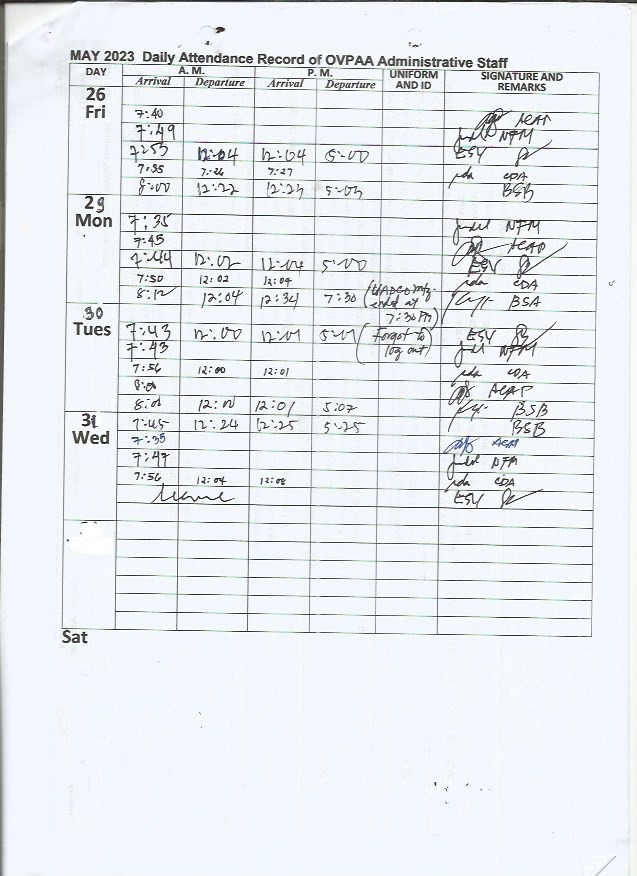 MAY 2023 Daily Attendance Record of OVPAA Administrative Staff
DAY A. M. P. M. UNIFORM AND ID SIGNATURE AND REMARKS
Arrival Departure Arrival Departure
26
Fri
7:40 ACAP
7:49 NFM
7:53 12:04 12:04 5:00 ESY
7:35 7:26 7:27 CDA
8:00 12:22 12:23 5:03 BSB
29
Mon
7:35 NFM
7:45 ACAP
7:44 12:02 12:04 5:00 ESY
7:50 12:02 12:04 CDA
8:12 12:04 12:34 7:30 (UADCO mtg. ended at 7:30 PM) BSA
30
Tues
7:43 12:00 12:01 5:01 (Forgot to log out) ESY
7:43 NFM
7:56 12:00 12:01 CDA
8:01 ACAP
8:01 12:01 5:07 BSB
31
Wed
7:45 12:24 12:25 5:25 BSB
7:35
7:47 NFM
7:56 12:04 12:08 CDA
ESY
Sat